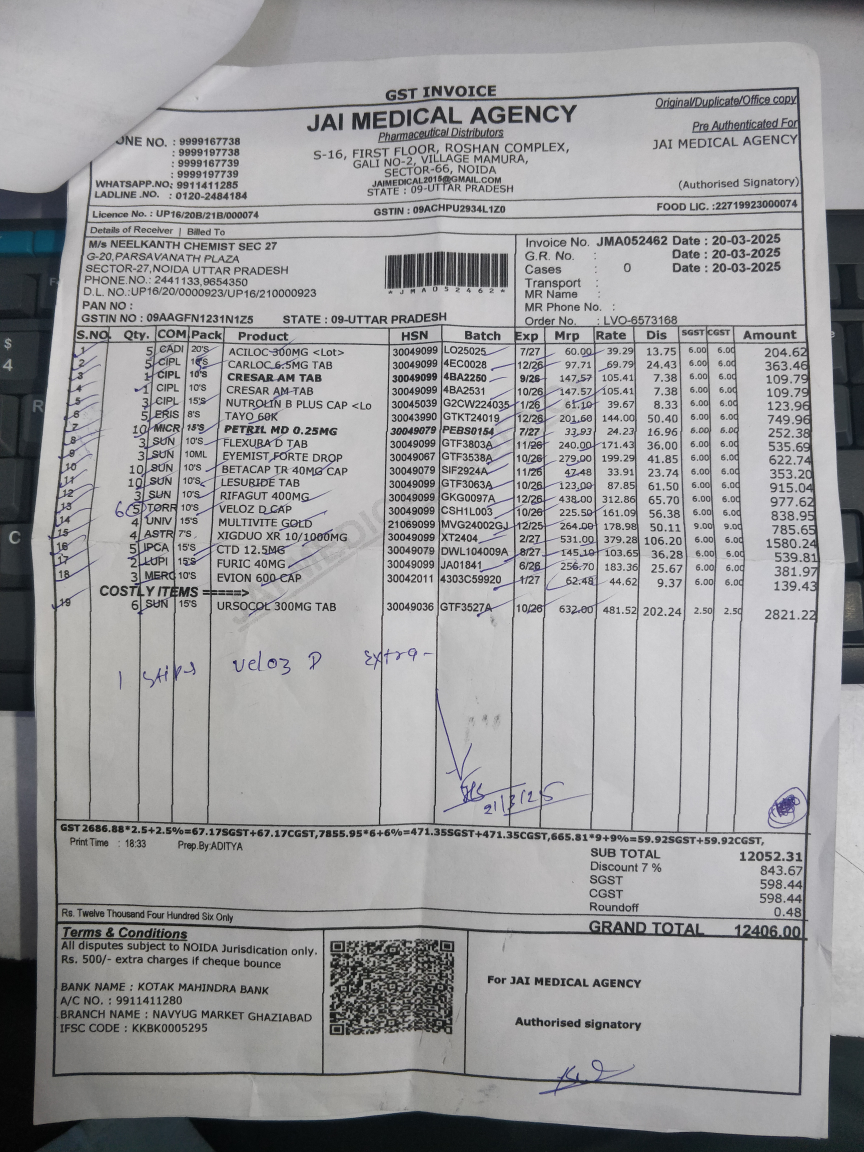 GST INVOICE
Original/Duplicate/Office copy
JAI MEDICAL AGENCY
Pharmaceutical Distributors
Pre Authenticated For
JAI MEDICAL AGENCY
ONE NO. : 9999167738
: 9999197738
: 9999167739
: 9999197739
WHATSAPP.NO: 9911411285
LADLINE .NO. : 0120-2484184
S-16, FIRST FLOOR, ROSHAN COMPLEX,
GALI NO-2, VILLAGE MAMURA,
SECTOR-66, NOIDA
JAIMEDICAL2015@GMAIL.COM
STATE : 09-UTTAR PRADESH
(Authorised Signatory)
Licence No. : UP16/20B/21B/000074
GSTIN : 09ACHPU2934L1Z0
FOOD LIC. :22719923000074
Details of Receiver | Billed To
M/s NEELKANTH CHEMIST SEC 27
G-20,PARSAVANATH PLAZA
SECTOR-27,NOIDA UTTAR PRADESH
PHONE.NO.: 2441133,9654350
D.L. NO.:UP16/20/0000923/UP16/210000923
PAN NO :
GSTIN NO : 09AAGFN1231N1Z5 STATE : 09-UTTAR PRADESH
*JMA052462*
Invoice No. JMA052462 Date : 20-03-2025
G.R. No. : Date : 20-03-2025
Cases : 0 Date : 20-03-2025
Transport :
MR Name :
MR Phone No. :
Order No. : LVO-6573168
S.NO. Qty. COM Pack Product HSN Batch Exp Mrp Rate Dis SGST CGST Amount
1 5 CADI 20'S ACILOC 300MG <Lot> 30049099 LO25025 7/27 60.00 39.29 13.75 6.00 6.00 204.62
2 5 CIPL 10'S CARLOC 6.5MG TAB 30049099 4EC0028 12/26 97.71 69.79 24.43 6.00 6.00 363.46
3 1 CIPL 10'S CRESAR AM TAB 30049099 4BA2260 9/26 147.57 105.41 7.38 6.00 6.00 109.79
4 1 CIPL 10'S CRESAR AM TAB 30049099 4BA2531 10/26 147.57 105.41 7.38 6.00 6.00 109.79
5 3 CIPL 15'S NUTROLIN B PLUS CAP <Lo 30045039 G2CW224035 1/26 61.10 39.67 8.33 6.00 6.00 123.96
6 5 ERIS 8'S TAYO 60K 30043990 GTKT24019 12/26 201.60 144.00 50.40 6.00 6.00 749.96
7 10 MICR 15'S PETRIL MD 0.25MG 30049079 PEBS0154 7/27 33.93 24.23 16.96 6.00 6.00 252.38
8 3 SUN 10'S FLEXURA D TAB 30049099 GTF3803A 11/26 240.00 171.43 36.00 6.00 6.00 535.69
9 3 SUN 10ML EYEMIST FORTE DROP 30049067 GTF3538A 10/26 279.00 199.29 41.85 6.00 6.00 622.74
10 10 SUN 10'S BETACAP TR 40MG CAP 30049079 SIF2924A 11/26 47.48 33.91 23.74 6.00 6.00 353.20
11 10 SUN 10'S LESURIDE TAB 30049099 GTF3063A 10/26 123.00 87.85 61.50 6.00 6.00 915.04
12 3 SUN 10'S RIFAGUT 400MG 30049099 GKG0097A 12/26 438.00 312.86 65.70 6.00 6.00 977.62
13 6 5 TORR 10'S VELOZ D CAP 30049099 CSH1L003 10/26 225.50 161.09 56.38 6.00 6.00 838.95
14 4 UNIV 15'S MULTIVITE GOLD 21069099 MVG24002GJ 12/25 264.00 178.98 50.11 9.00 9.00 785.65
15 4 ASTR 7'S XIGDUO XR 10/1000MG 30049099 XT2404 2/27 531.00 379.28 106.20 6.00 6.00 1580.24
16 5 IPCA 15'S CTD 12.5MG 30049079 DWL104009A 8/27 145.10 103.65 36.28 6.00 6.00 539.81
17 2 LUPI 15'S FURIC 40MG 30049099 JA01841 6/26 256.70 183.36 25.67 6.00 6.00 381.97
18 3 MERC 10'S EVION 600 CAP 30042011 4303C59920 1/27 62.48 44.62 9.37 6.00 6.00 139.43
COSTLY ITEMS =====>
19 6 SUN 15'S URSOCOL 300MG TAB 30049036 GTF3527A 10/26 632.00 481.52 202.24 2.50 2.50 2821.22
1 Veloz D Extra-
21/3/25
GST 2686.88*2.5+2.5%=67.17SGST+67.17CGST,7855.95*6+6%=471.35SGST+471.35CGST,665.81*9+9%=59.92SGST+59.92CGST,
Print Time : 18:33 Prep.By:ADITYA
SUB TOTAL 12052.31
Discount 7 % 843.67
SGST 598.44
CGST 598.44
Roundoff 0.48
Rs. Twelve Thousand Four Hundred Six Only
GRAND TOTAL 12406.00
Terms & Conditions
All disputes subject to NOIDA Jurisdication only.
Rs. 500/- extra charges if cheque bounce
BANK NAME : KOTAK MAHINDRA BANK
A/C NO. : 9911411280
BRANCH NAME : NAVYUG MARKET GHAZIABAD
IFSC CODE : KKBK0005295
For JAI MEDICAL AGENCY
Authorised signatory